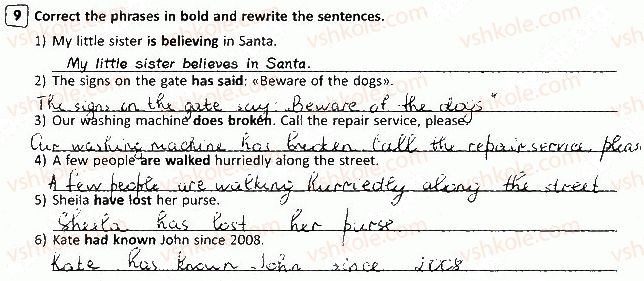 9 Correct the phrases in bold and rewrite the sentences.
1) My little sister is believing in Santa.
My little sister believes in Santa.
2) The signs on the gate has said: «Beware of the dogs».
The signs on the gate say: Beware of the dogs"
3) Our washing machine does broken. Call the repair service, please.
Our washing machine has broken Call the repair service, pleas
4) A few people are walked hurriedly along the street.
A few people are walking hurriedly along the street
5) Sheila have lost her purse.
Sheila has lost her purse
6) Kate had known John since 2008.
Kate has known John since 2008
vshkole.com